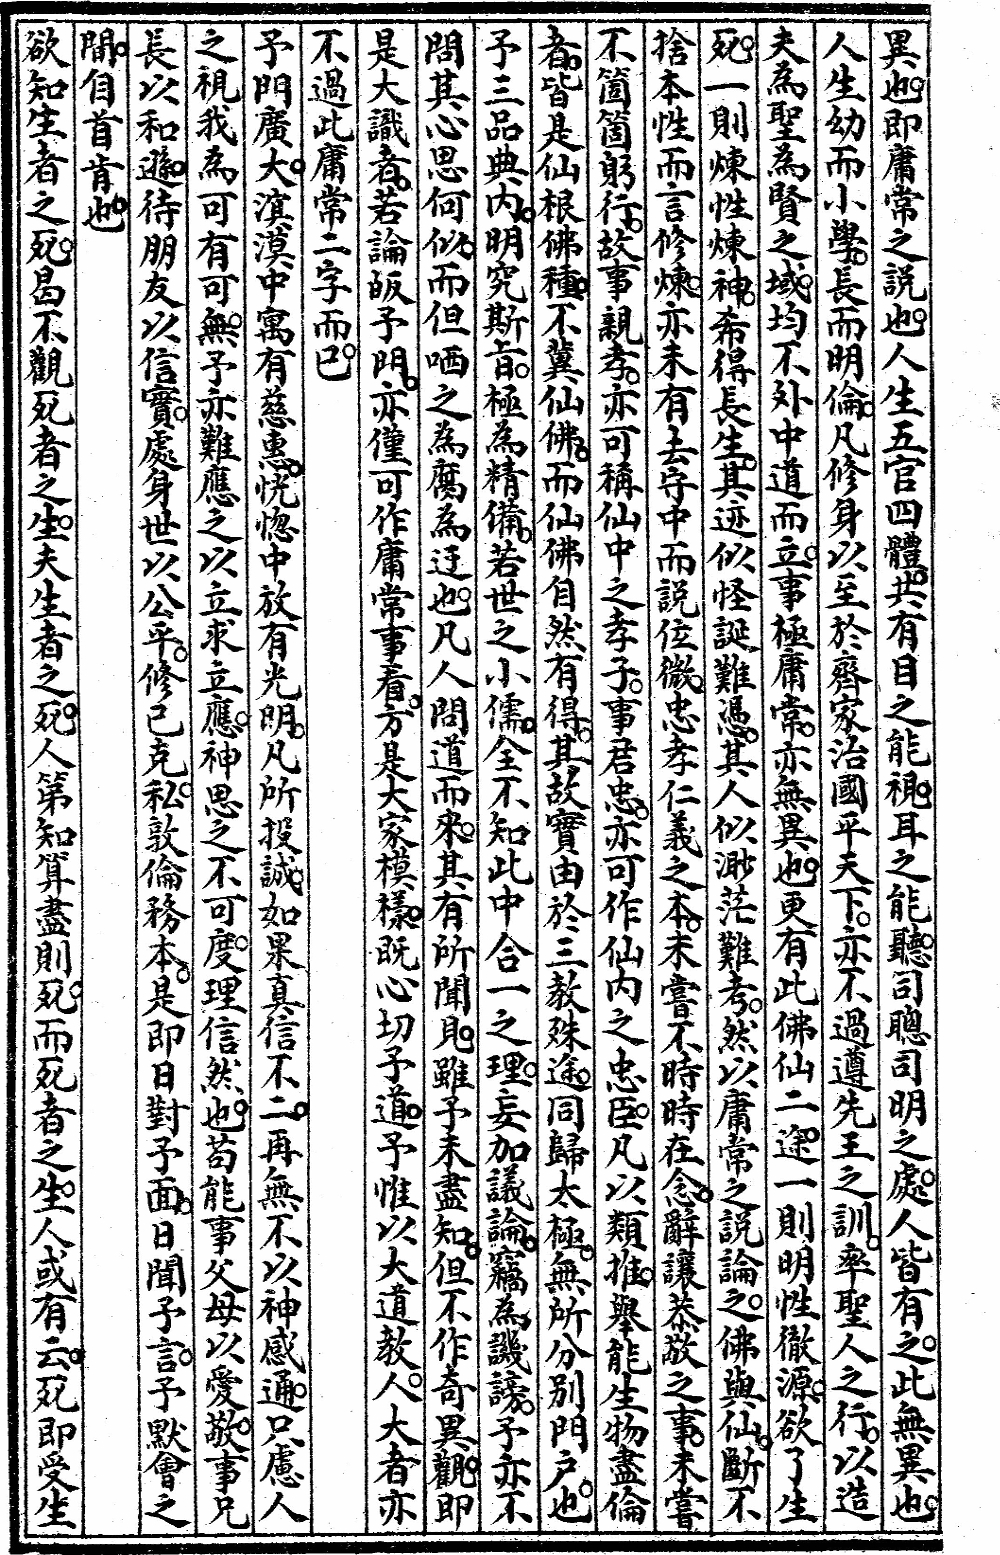 異也。即庸常之說也。人生五官四體。共有目之能視。耳之能聽。司聰司明之處。人皆有之。此無異也。
人生幼而小學。長而明倫。凡修身以至於齊家治國平天下。亦不過遵先王之訓。率聖人之行。以造
夫為聖為賢之域。均不外中道而立。事極庸常。亦無異也。更有此佛仙二途。一則明性徹源。欲了生
死。一則煉性煉神。希得長生。其迹似怪誕難憑。其人似渺茫難考。然以庸常之說論之。佛與仙。斷不
捨本性而言修煉。亦未有去守中而說位微。忠孝仁義之本。未嘗不時時在念。辭讓恭敬之事。未嘗
不箇箇躬行。故事親孝。亦可稱仙中之孝子。事君忠。亦可作仙內之忠臣。凡以類推。舉能生物盡倫
者。皆是仙根佛種。不冀仙佛。而仙佛自然有得。其故實由於三教殊途。同歸太極。無所分別門戶。也
予三品典內。明究斯旨。極為精備。若世之小儒。全不知此中合一之理。妄加議論。竊為譏謗。予亦不
問其心思何似。而但哂之為腐為迂也。凡人問道而來。其有所聞見。雖予未盡知。但不作奇異觀。即
是大識者。若論皈予門。亦僅可作庸常事看。方是大家模樣。既心切予道。予惟以大道教人。大者亦
不過此庸常二字而已。
予門廣大。溟漠中寓有慈惠。恍惚中放有光明。凡所投誠。如果真信不二。再無不以神感通。只慮人
之視我為可有可無。予亦難應之以立求立應。神思之不可度。理信然也。苟能事父母以愛敬。事兄
長以和遜。待朋友以信實。處身世以公平。修己克私。敦倫務本。是即日對予面。日聞予言。予默會之
間。自首肯也。
欲知生者之死。曷不觀死者之生。夫生者之死。人第知算盡則死。而死者之生。人或有云。死即受生